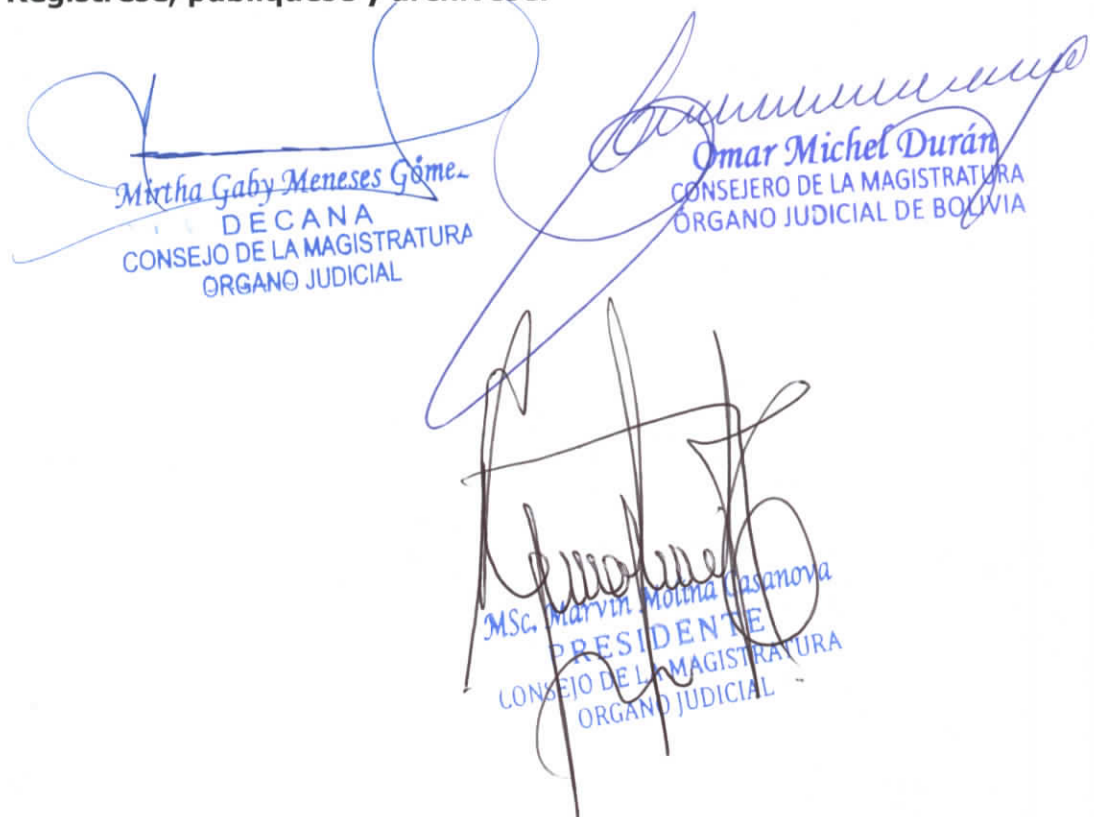 Regístrese, publíquese y archívese.
Mirtha Gaby Meneses Góme
DECANA
CONSEJO DE LA MAGISTRATURA
ORGANO JUDICIAL
Omar Michel Durán
CONSEJERO DE LA MAGISTRATURA
ÓRGANO JUDICIAL DE BOLIVIA
MSc. Marvin Molina Casanova
PRESIDENTE
CONSEJO DE LA MAGISTRATURA
ORGANO JUDICIAL